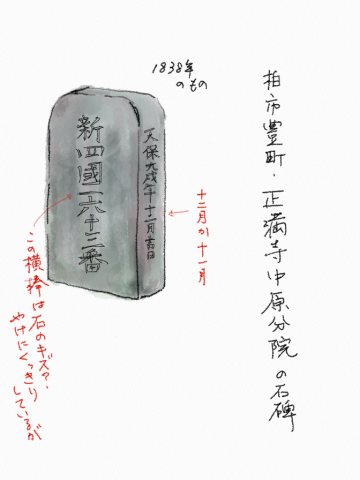 柏市豊町・正満寺中原分院の石碑
1838年
のもの
天保九戌年十二月吉日
新四國一六十三番
十二月か十一月
この横棒は石のキズ?
やけにくっきり
しているが